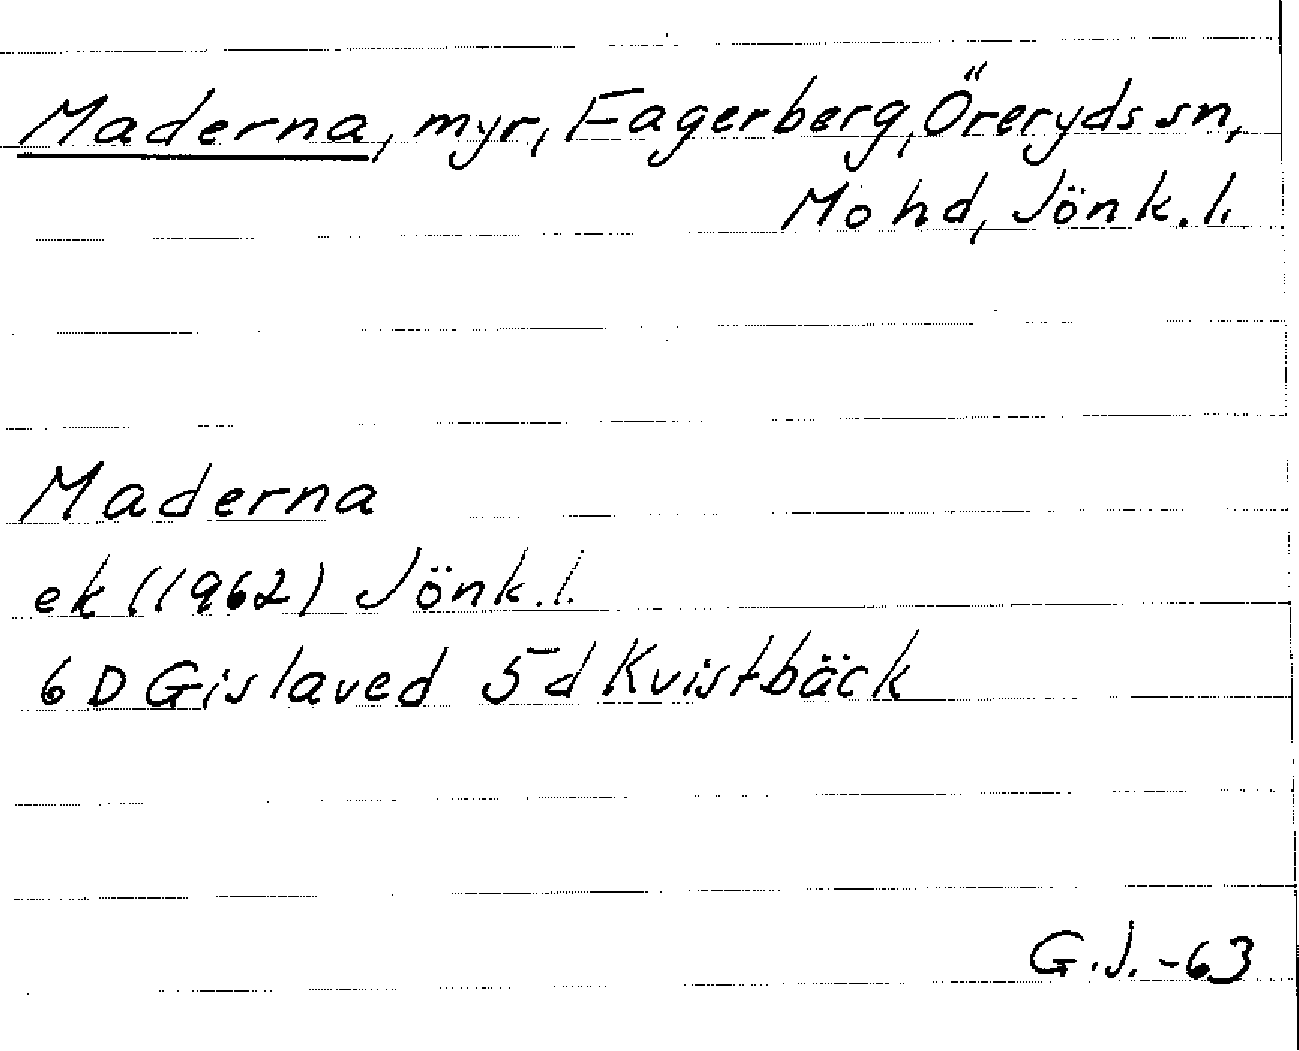 Maderna, myr, Fagerberg, Öreryds sn,
Mo hd, Jönk. l.
Maderna
ek (1962) Jönk. l.
6 D Gislaved 5 d Kvistbäck
G.J. -63